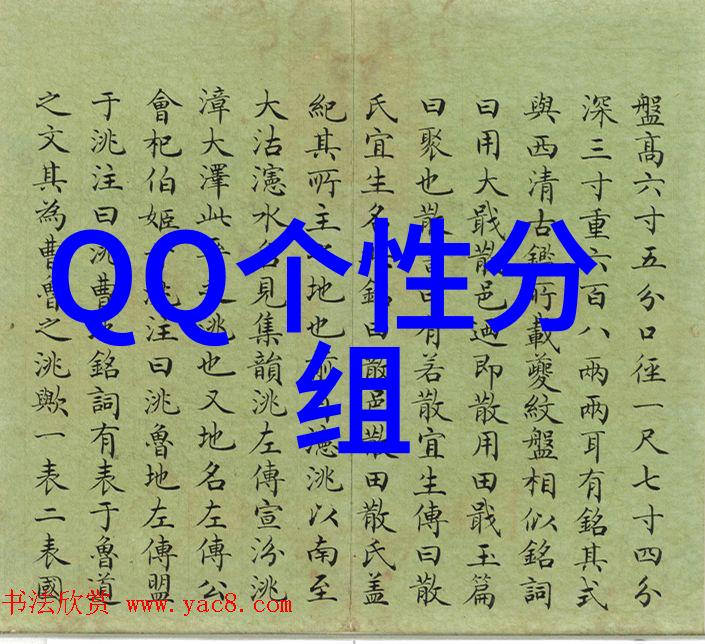 盤高六寸五分口徑一尺七寸四分
深三寸重六百八兩兩耳有銘其式
與西清古鑑所載夔紋盤相似銘詞
曰用大戩散邑迺即散用田戩玉篇
曰聚也散 有若散宜生傳曰散
氏宜生名 銘曰散邑散田散氏盖
紀其所主 地也 瀗洮以南至
大沽瀗水名見集韻洮左傳宣汾洮
漳大澤此 洮也又地名左傳公
會杞伯姬 洮注曰洮魯地左傳盟
于洮注曰洮曹地銘詞有表于魯道
之文其為曹魯之洮歟一表二表國
QQ个性分
组
书法欣赏 www.yac8.com